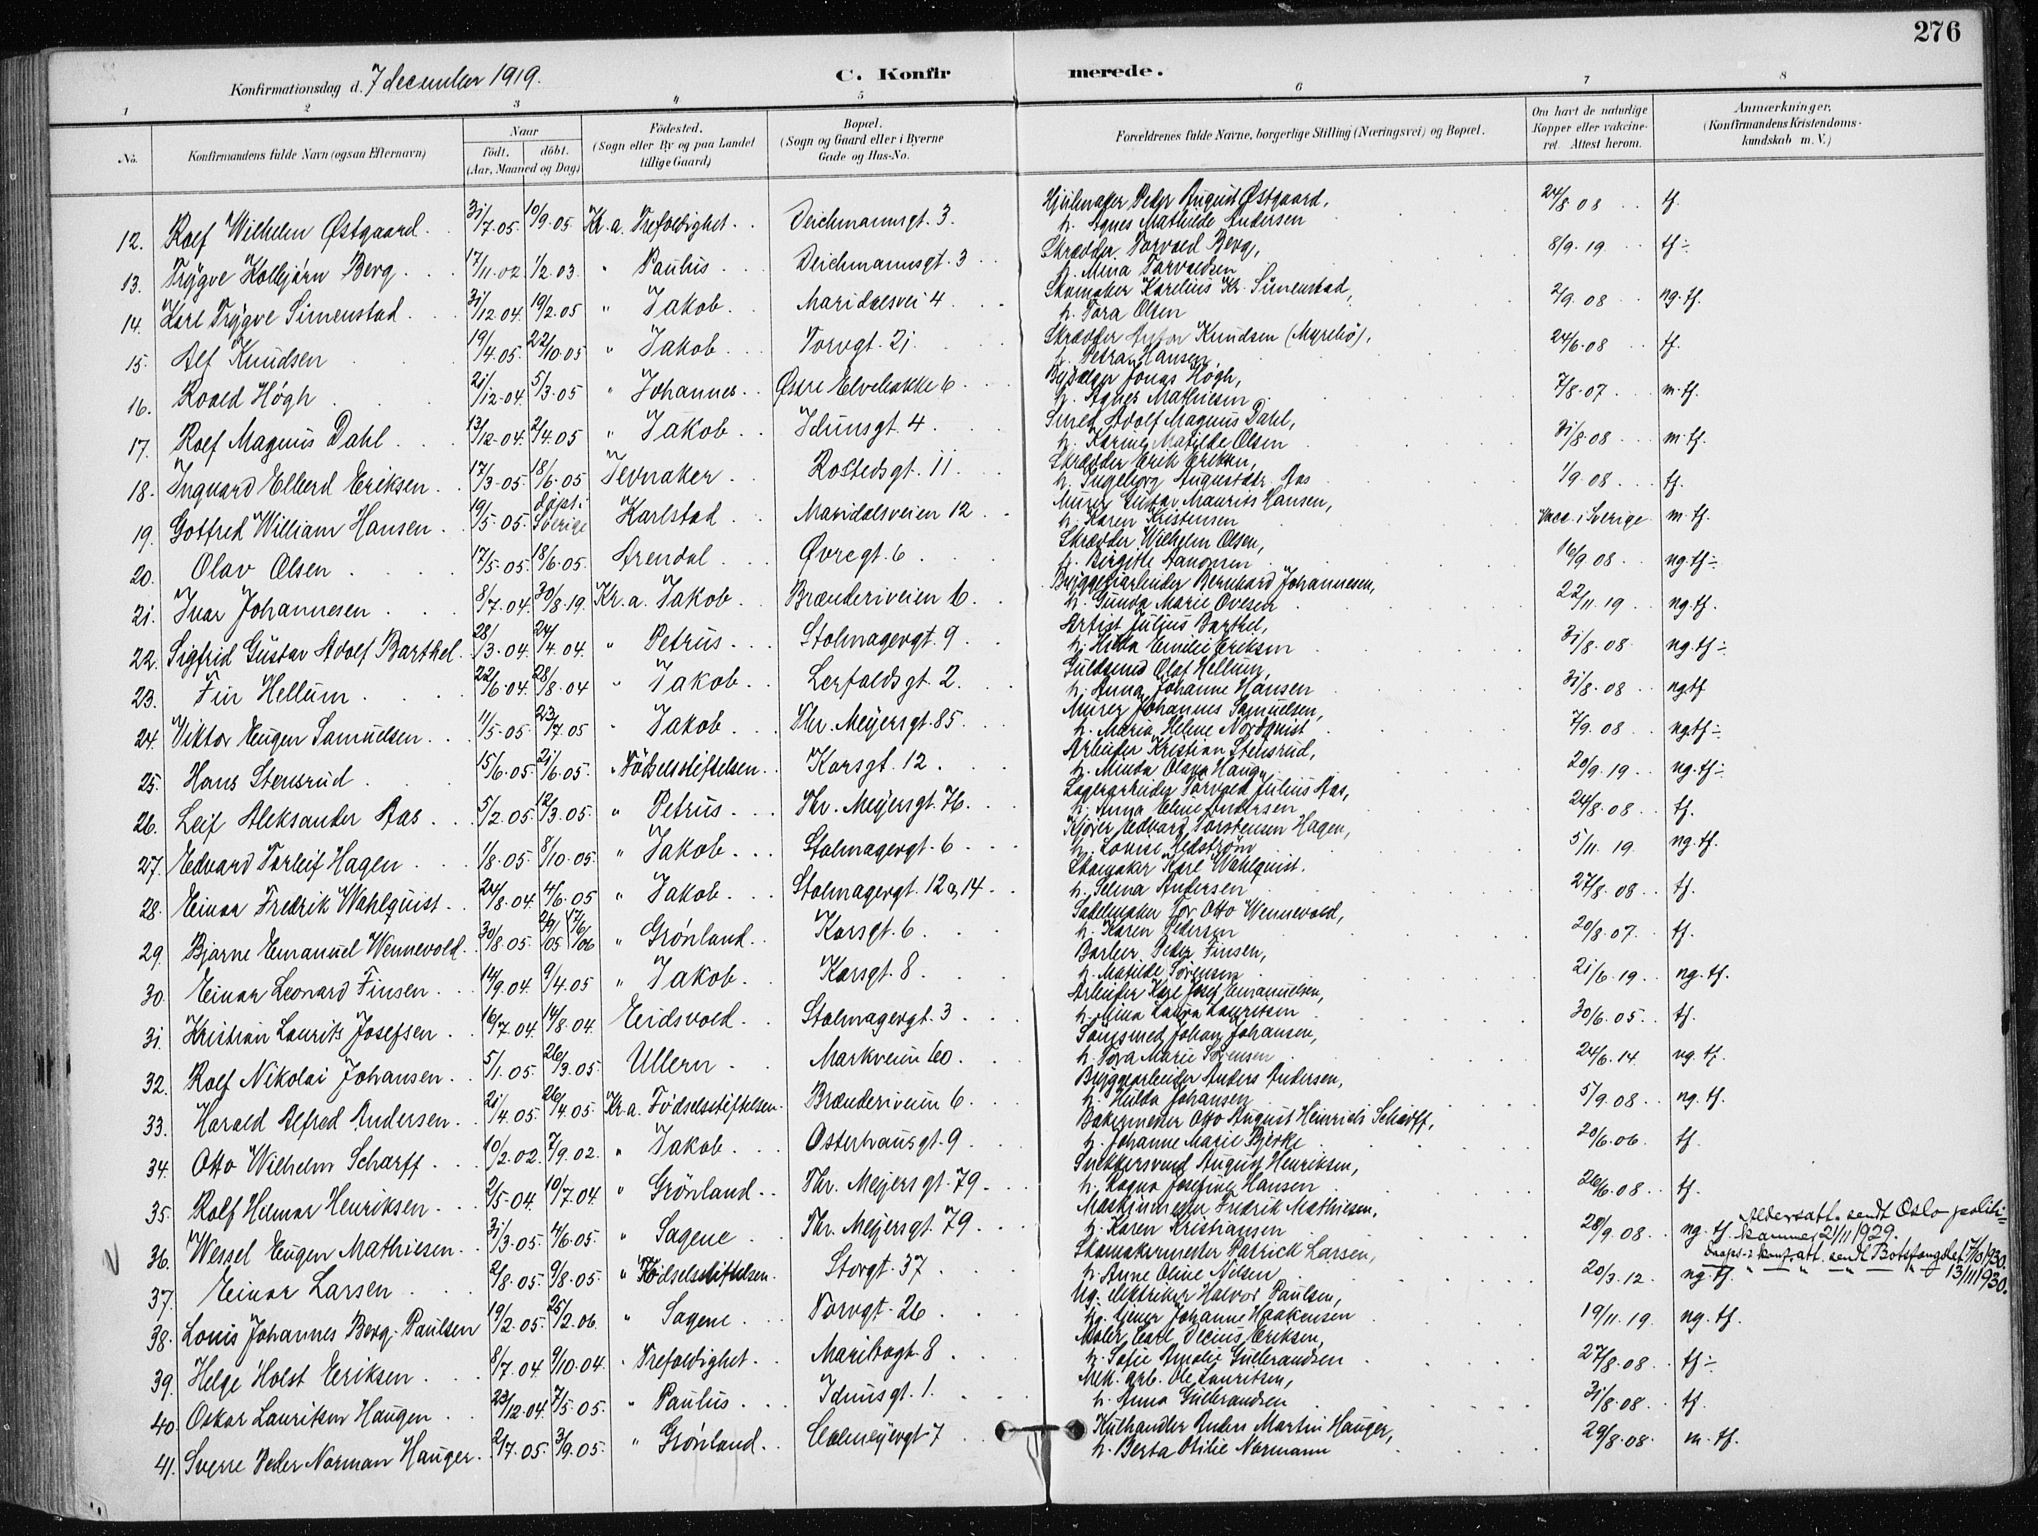 276
Konfirmationsdag d. 7 december 1919.
C. Konfir merede.
1 2 3 4 5 6 7 8
No. Konfirmandens fulde Navn (ogsaa Efternavn) Naar födt. döbt. (Aar, Maaned og Dag) Födested. (Sogn eller By og paa Landet tillige Gaard) Bopæl. (Sogn og Gaard eller i Byerne Gade og Hus-No. Forældrenes fulde Navne, borgerlige Stilling (Næringsvei) og Bopæl. Om havt de naturlige Kopper eller vakcineret. Attest herom. Anmærkninger, (Konfirmandens Kristendomskundskab m. V.)
12. Rolf Wilhelm Østgaard 31/7.05 10/9.05 Kr.a. Trefoldighet Deichmannsgt. 3. Hjulmaker Peder August Østgaard, 24/8 08 tf.
h. Agnes Mathilde Andersen
13. Trygve Kolbjörn Berg 17/11.02 1/2.03 " Paulus Deichmannsgt. 3 Skrædder Torvald Berg, 8/9.19 tf÷
h. Mina Torvaldsen
14. Karl Trygve Simenstad 31/12.04 19/2.05 " Jakob Maridalsvei 4 Skomaker Karelius Kr. Simenstad, 2/9.08 ng.tf.
h. Tora Olsen
15. Alf Knudsen 19/4.05 22/10.05 " Jakob Torvgt. 21 Skrædder Anton Knudsen (Myreliö), 24/6.08 tf.
h. Petra Hansen
16. Roald Högh 21/12.04 5/3.05 " Johannes Østre Elvebakke 6 Jonas Högh, 7/8.07 m.tf.
h. Agnes Mathiesen
17. Rolf Magnus Dahl 13/12.04 2/4.05 " Jakob Idunsgt. 4 Smed Adolf Magnus Dahl, 31/8.08 m.tf.
h. Karine Matilde Olsen
18. Ingvard Elberd Eriksen 17/3.05 18/6.05 Jevnaker Rostedsgt. 11 Skrædder Erik Eriksen, 1/9.08 tf.
h. Ingeborg Augustdtr. Aas
19. Gotfred William Hansen 19/5.05 döpt i Sverige Karlstad Maridalsveien 12 Murer Gustav Maurits Hansen, Vacc. i Sverige m.tf.
h. Karen Kristensen
20. Olav Olsen 17/5.05 18/6.05 Arendal Øvregt. 6 Skrædder Wilhelm Olsen, 16/9.08 ng.tf÷
h. Birgitte Aanonsen
21. Ivar Johannesen 8/7.04 30/8.19 Kr.a. Jakob Brænderiveien 6 Bryggeriarbeider Bernhard Johannesen, 22/11.19 ng.tf.
h. Gunda Marie Ovesen
22. Sigfrid Gustav Adolf Barthel 28/3.04 24/4.04 " Petrus Stolmagergt. 9 Artist Julius Barthel, 31/8.08 ng.tf÷
h. Hilda Emilie Eriksen
23. Fin Hellum 22/6.04 28/8.04 " Jakob Lerfaldsgt 2. Guldsmed Olaf Hellum, 31/8.08 ngtf
h. Anna Johanne Hansen
24. Viktor Eugen Samuelsen 11/5.05 23/7.05 " Jakob Thr. Meyersgt. 85 Murer Johannes Samuelsen, 7/9.08 ng.tf÷
h. Maria Helene Nordquist
25. Hans Stensrud 15/6.05 21/6.05 " Födselsstiftelsen Korsgt. 12 Arbeider Kristian Stensrud, 20/9.19 ng.tf÷
h. Minda Olava Haug
26. Leif Aleksander Aas 5/2.05 12/3.05 " Petrus Thr. Meyersgt. 76 Lagerarbeider Torvald Julius Aas, 24/8.08 tf.
h. Anna Eline Andersen
27. Edvard Torleif Hagen 1/8.05 8/10.05 " Jakob Stolmagergt. 6 Kjörer Edvard Torstensen Hagen, 5/11.19 ng.tf.
h. Lovise Hedström
28. Einar Fredrik Wahlquist 24/8.04 4/6.05 " Jakob Stolmagergt 12 a, 14 Skomaker Karl Wahlquist. 27/8.08 tf.
h. Selma Andersen
29. Bjarne Emanuel Wennevold 30/8.05 26/9 05 17/6 06 " Grönland Korsgt. 6 Sadelmaker Tor Otto Wennevold, 20/8.07 tf.
h. Karen Pedersen
30. Einar Leonard Finsen 14/9.04 9/4.05 " Jakob Korsgt. 8 Barber Peder Finsen, 21/6.19 ng.tf.
h. Matilde Sörensen
31. Kristian Laurits Josefsen 16/7.04 14/8.04 Eidsvold Stolmagergt. 3 Arbeider Karl Josef Emanuelsen, 30/6.05 tf.
h. Mina Laura Lauritsen
32. Rolf Nikolai Johansen 5/1.05 26/3.05 Ullern Markveien 60 Johan Johansen, 24/6.14 ng.tf.
h. Tora Marie Sörensen
33. Harald Alfred Andersen 21/4.05 26/4.05 Kr.a. Födselsstiftelsen Brænderiveien 6 Bryggearbeider Anders Andersen, 5/9.08 ng.tf.
h. Hilda Johansen
34. Otto Wilhelm Scharff 10/2.02 7/9.02 " Jakob Osterhausgt. 9 Bakermester Otto August Heinrich Scharff, 20/6.06 tf.
h. Johanne Marie Bjerke
35. Rolf Hilmar Henriksen 2/5.04 10/7.04 " Grönland Thr. Meyersgt. 79 Snekkersvend August Henriksen, 26/6.08 tf.
h. Ragna Josefine Hansen
36. Wessel Eugen Mathiesen 31/3.05 4/6.05 " Sagene Thr. Meyersgt. 79 Maskinmester Fredrik Mathiesen, 28/9.08 ng.tf. Aldersatt. sendt Oslo politikammer 21/11 1929.
h. Karen Kristiansen
37. Einar Larsen 2/8.05 9/8.05 " Födselsstiftelsen Storgt. 37 Skomakermester Patrick Larsen, 20/3.12 ng.tf. Daaps- & konf.att. sendt Botsfængslet 17/10 1930.
h. Anne Oline Nilsen " " " " 13/11 1930.
38. Louis Johannes Berg-Paulsen 19/2.05 25/2.06 " Sagene Torvgt. 26 Ug. elektriker Halvor Paulsen, 19/11.19 ng.tf.
Johanne Haakensen
39. Helge Holst Eriksen 8/7.04 9/10.04 " Trefoldighet Maribogt. 8 Maler Carl Decius Eriksen, 27/8.08 tf÷
h. Sofie Amalie Gulbrandsen
40. Oskar Lauritsen Haugen 23/12.04 7/5.05 " Paulus Idunsgt. 1 Mek. arb. Ole Lauritsen, 31/8.08 tf.
h. Anna Gulbrandsen
41. Sverre Peder Norman Hauger 2/7.05 3/9.05 " Grönland Calmeyergt 7 Kulhandler Anders Martin Hauger, 29/8.08 m.tf.
h. Berta Otilie Normann